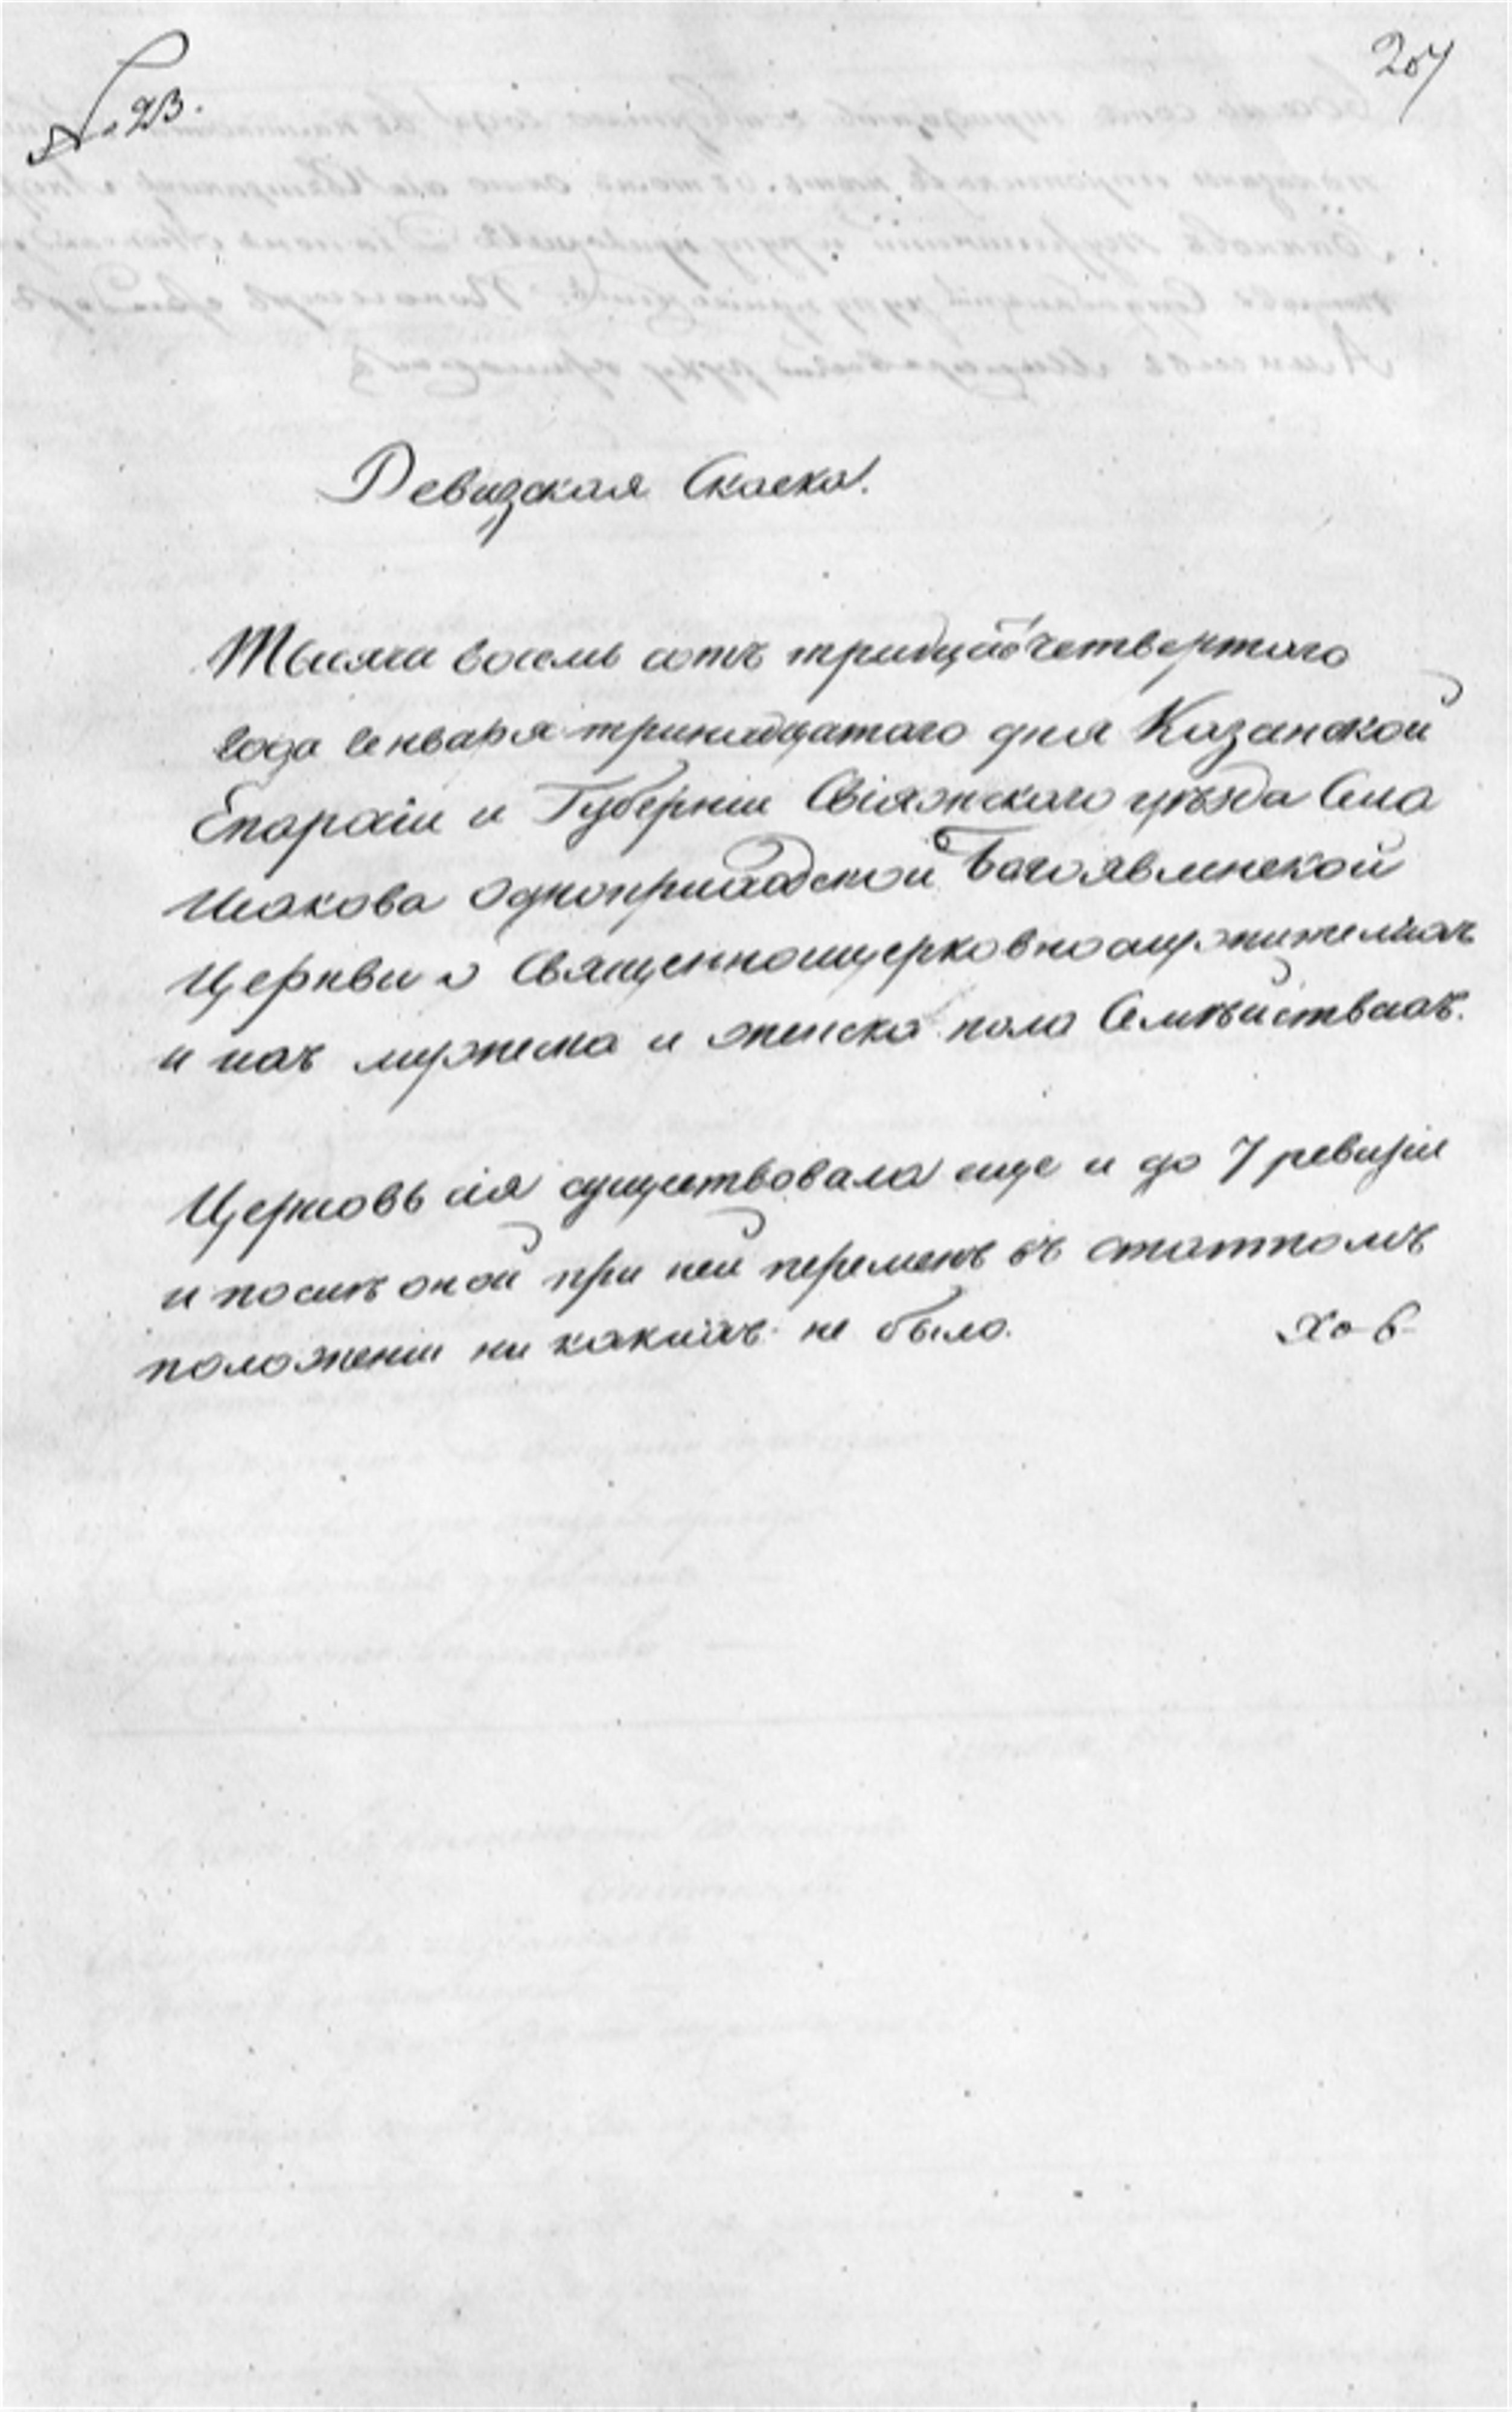 № 23.
207
Ревизская Скаска.
Тысяча восемь сотъ тридцать четвертаго
года Генваря тринадцатаго дня Казанской
Епархіи и Губерніи Свіяжскаго уѣзда Села
Исакова Одноприходской Богоявленской
Церкви о Священноцерковнослужителяхъ
и ихъ мужеска и женска пола Семѣйствахъ.
Церковь сія существовала еще и до 7 ревизіи
и послѣ оной при ней перемѣнъ въ статномъ
положеніи ни какихъ не было.